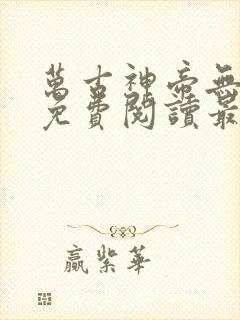 萬古神帝無
免費閱讀最
贏紫華